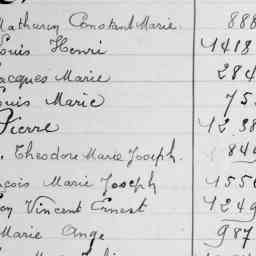 Mathurin Constant Marie 888
Louis Henri 1418
Jacques Marie 284
Louis Marie 75
Pierre 12.38
Théodore Marie Joseph. 844
François Marie Joseph 1550
Vincent Ernest 1249
Marie Ange 987